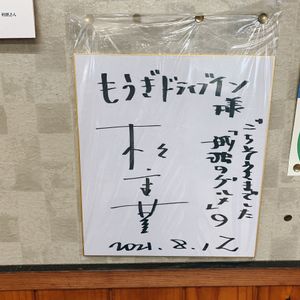 もうぎドライブイン
様
ごちそうさまでした
「孤独のグルメ」9
松重豊
2021.8.1